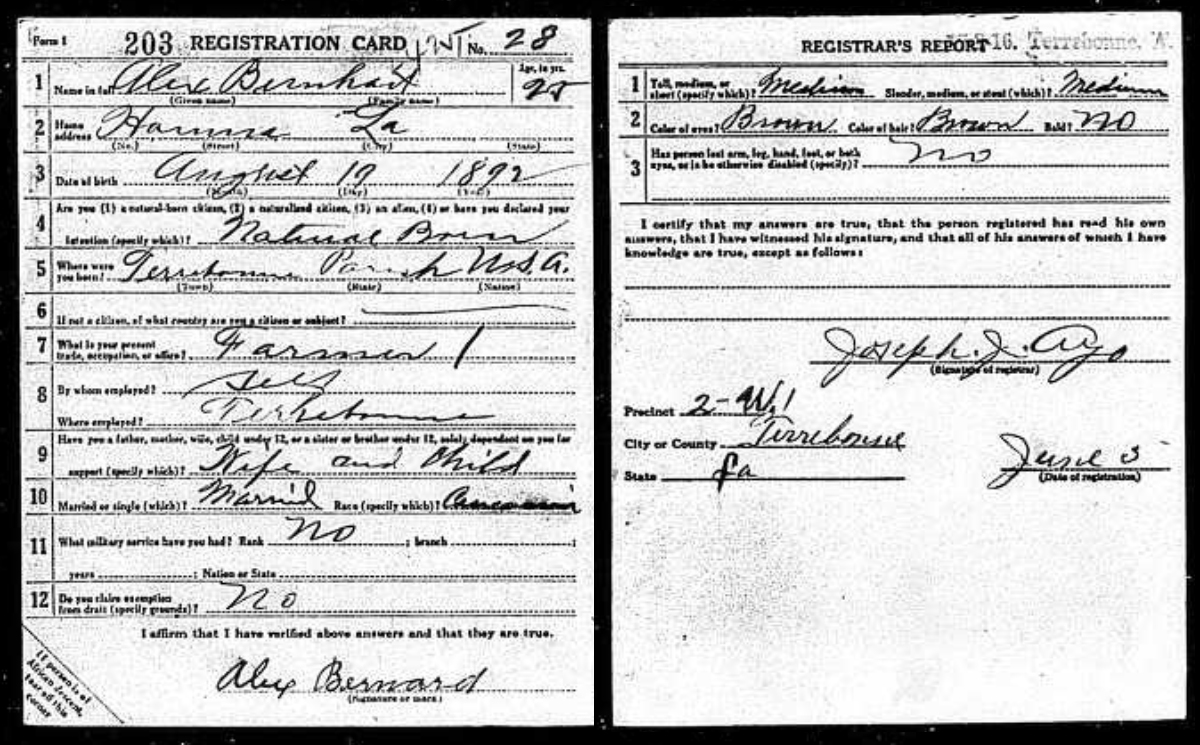 Form 1 203 REGISTRATION CARD No. 28
1 Name in full Alex Bernhart Age, in yrs. 25
(Given name) (Family name)
2 Home address Houma La
(No.) (Street) (City) (State)
3 Date of birth August 19 1892
(Month) (Day) (Year)
4 Are you (1) a natural-born citizen, (2) a naturalized citizen, (3) an alien, (4) or have you declared your
intention (specify which)? Natural Born
5 Where were you born? Terrebonne Parish U.S.A.
(Town) (State) (Nation)
6 If not a citizen, of what country are you a citizen or subject?
7 What is your present trade, occupation, or office? Farmer 1
8 By whom employed? Self
Where employed? Terrebonne
9 Have you a father, mother, wife, child under 12, or a sister or brother under 12, solely dependent on you for
support (specify which)? Wife and Child
10 Married or single (which)? Married Race (specify which)?
11 What military service have you had? Rank No ; branch ;
years ; Nation or State
12 Do you claim exemption from draft (specify grounds)? No
I affirm that I have verified above answers and that they are true.
Alex Bernard
(Signature or mark)
If person is of
African descent,
tear off this
corner
REGISTRAR'S REPORT 16. Terrebonne,
1 Tall, medium, or short (specify which)? Medium Slender, medium, or stout (which)? Medium
2 Color of eyes? Brown Color of hair? Brown Bald? No
3 Has person lost arm, leg, hand, foot, or both
eyes, or is he otherwise disabled (specify)? No
I certify that my answers are true, that the person registered has read his own
answers, that I have witnessed his signature, and that all of his answers of which I have
knowledge are true, except as follows:
Joseph. J. Ayo
(Signature of registrar)
Precinct 2-W.1
City or County Terrebonne
State La
June 5
(Date of registration)